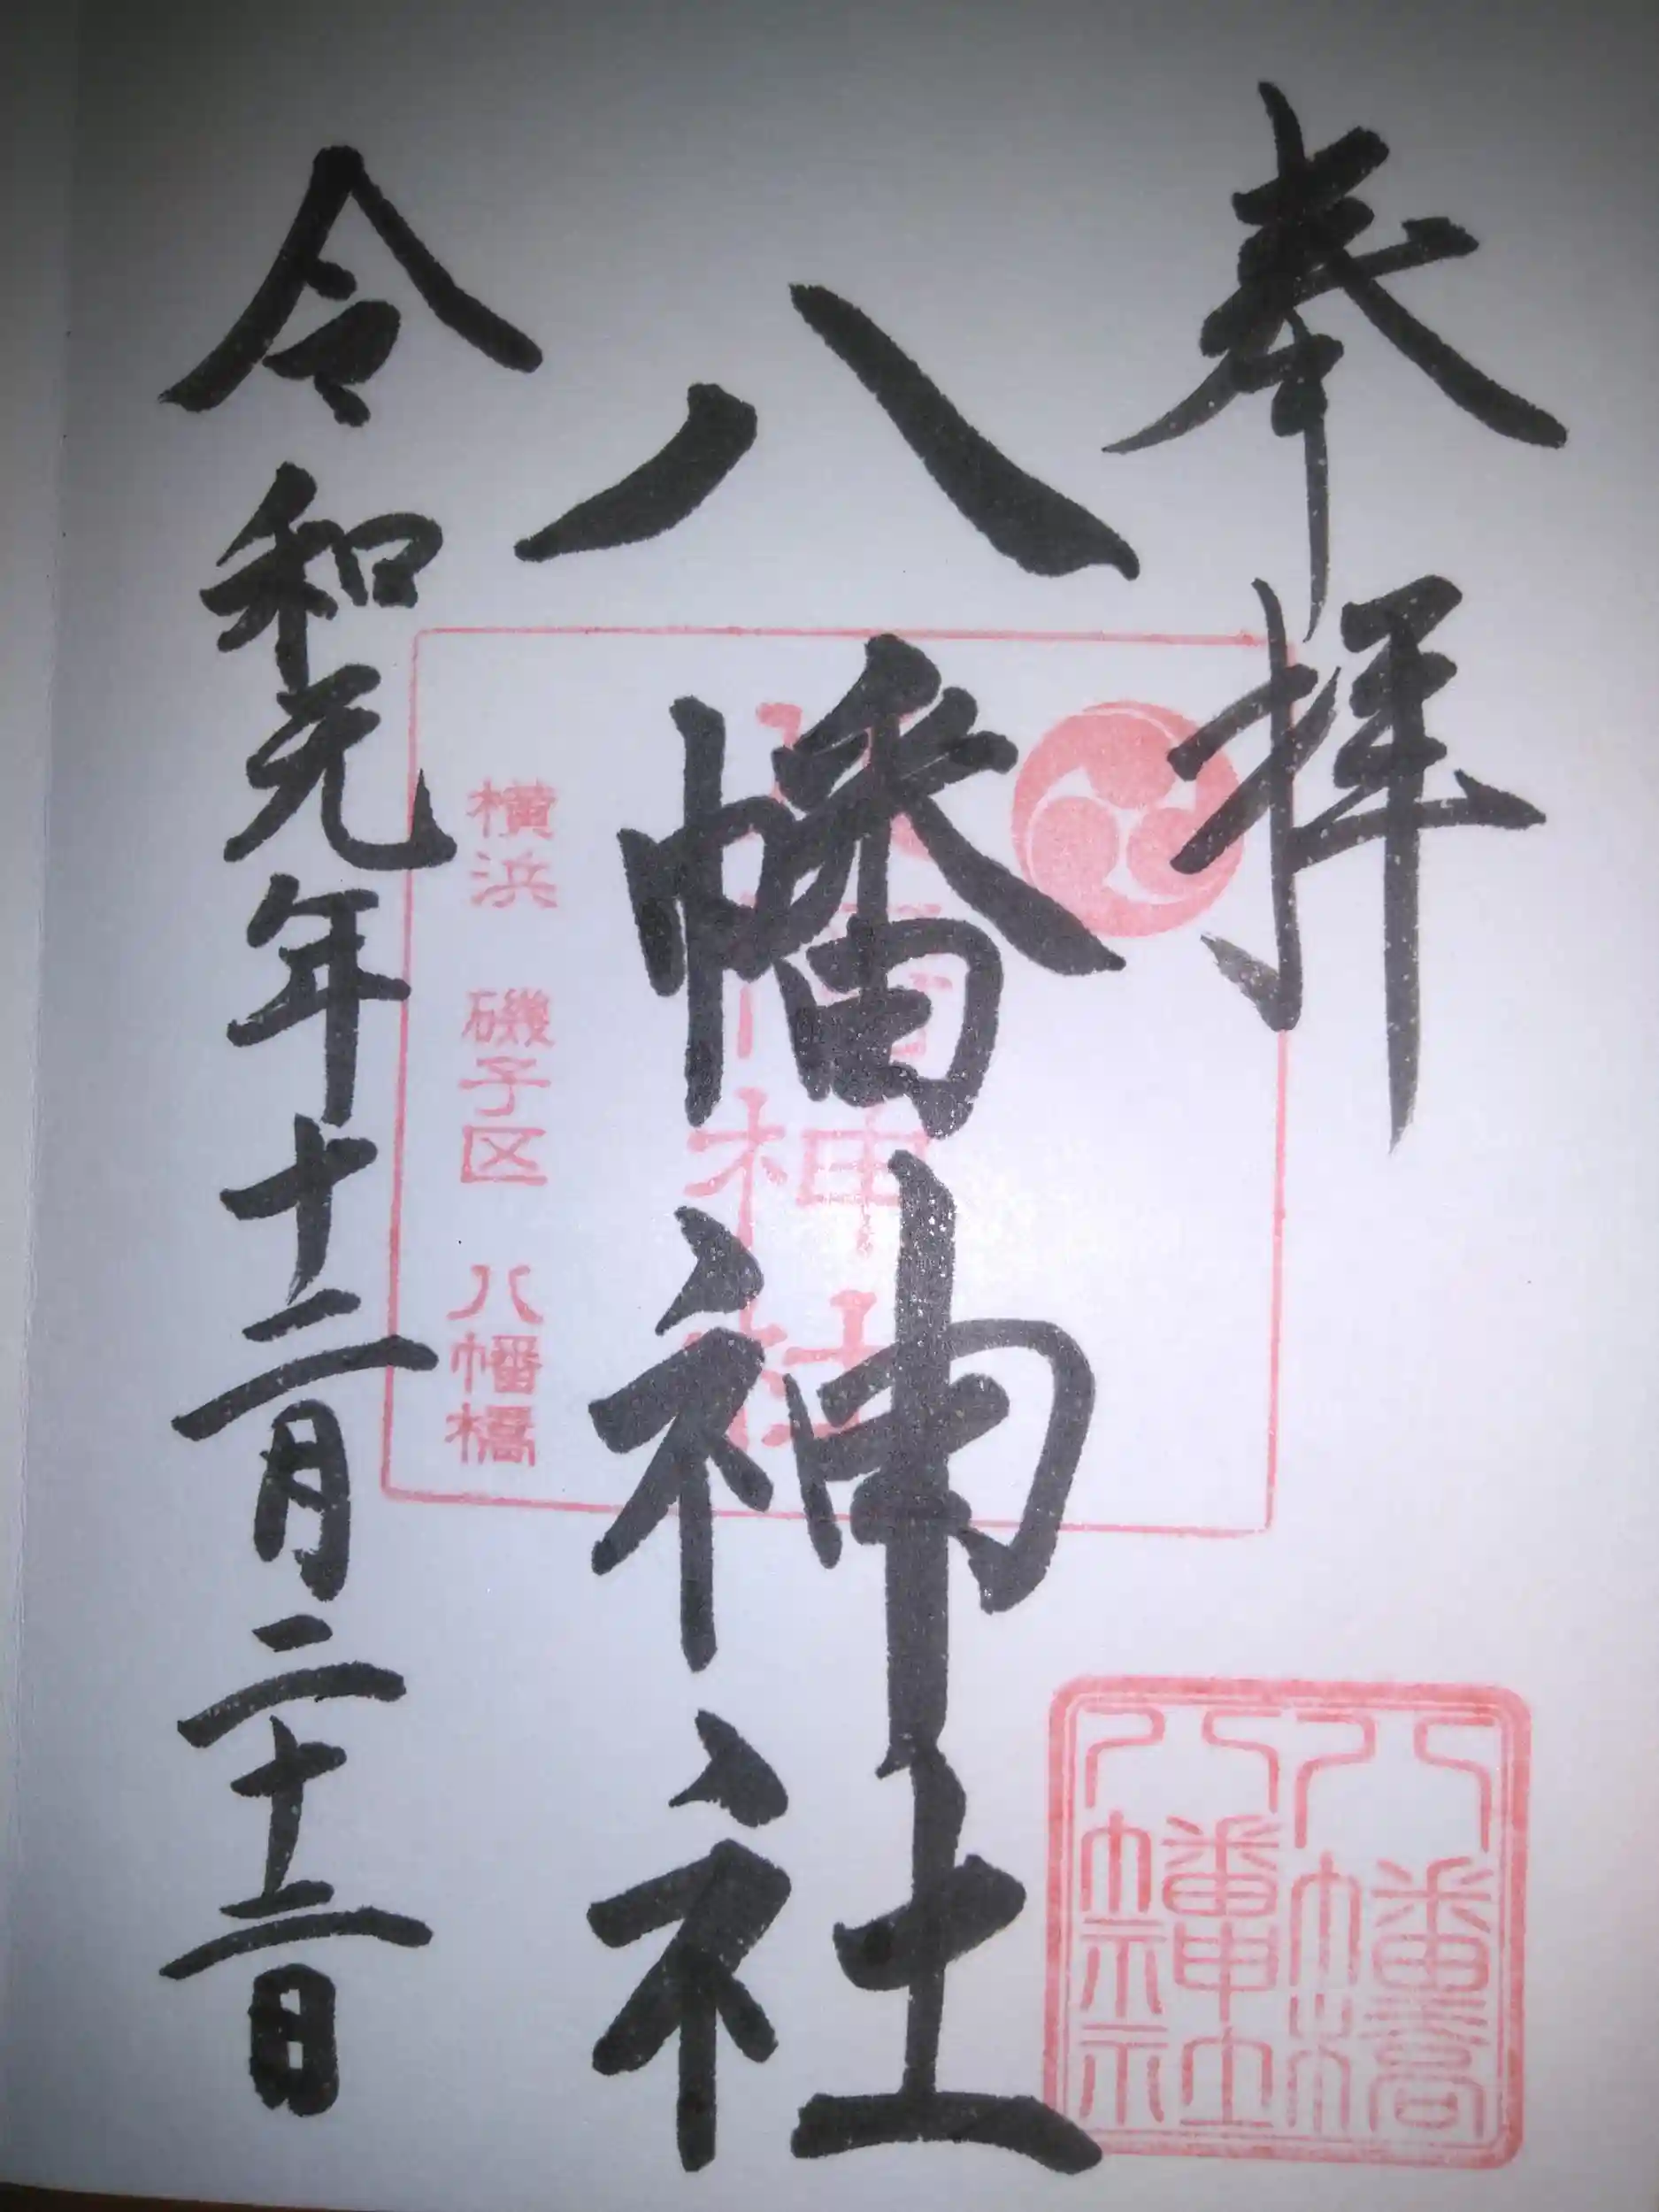 奉拝
八幡神社
令和元年十二月二十二日
八幡神社
横浜 磯子区 八幡橋
八幡橋
八幡神社